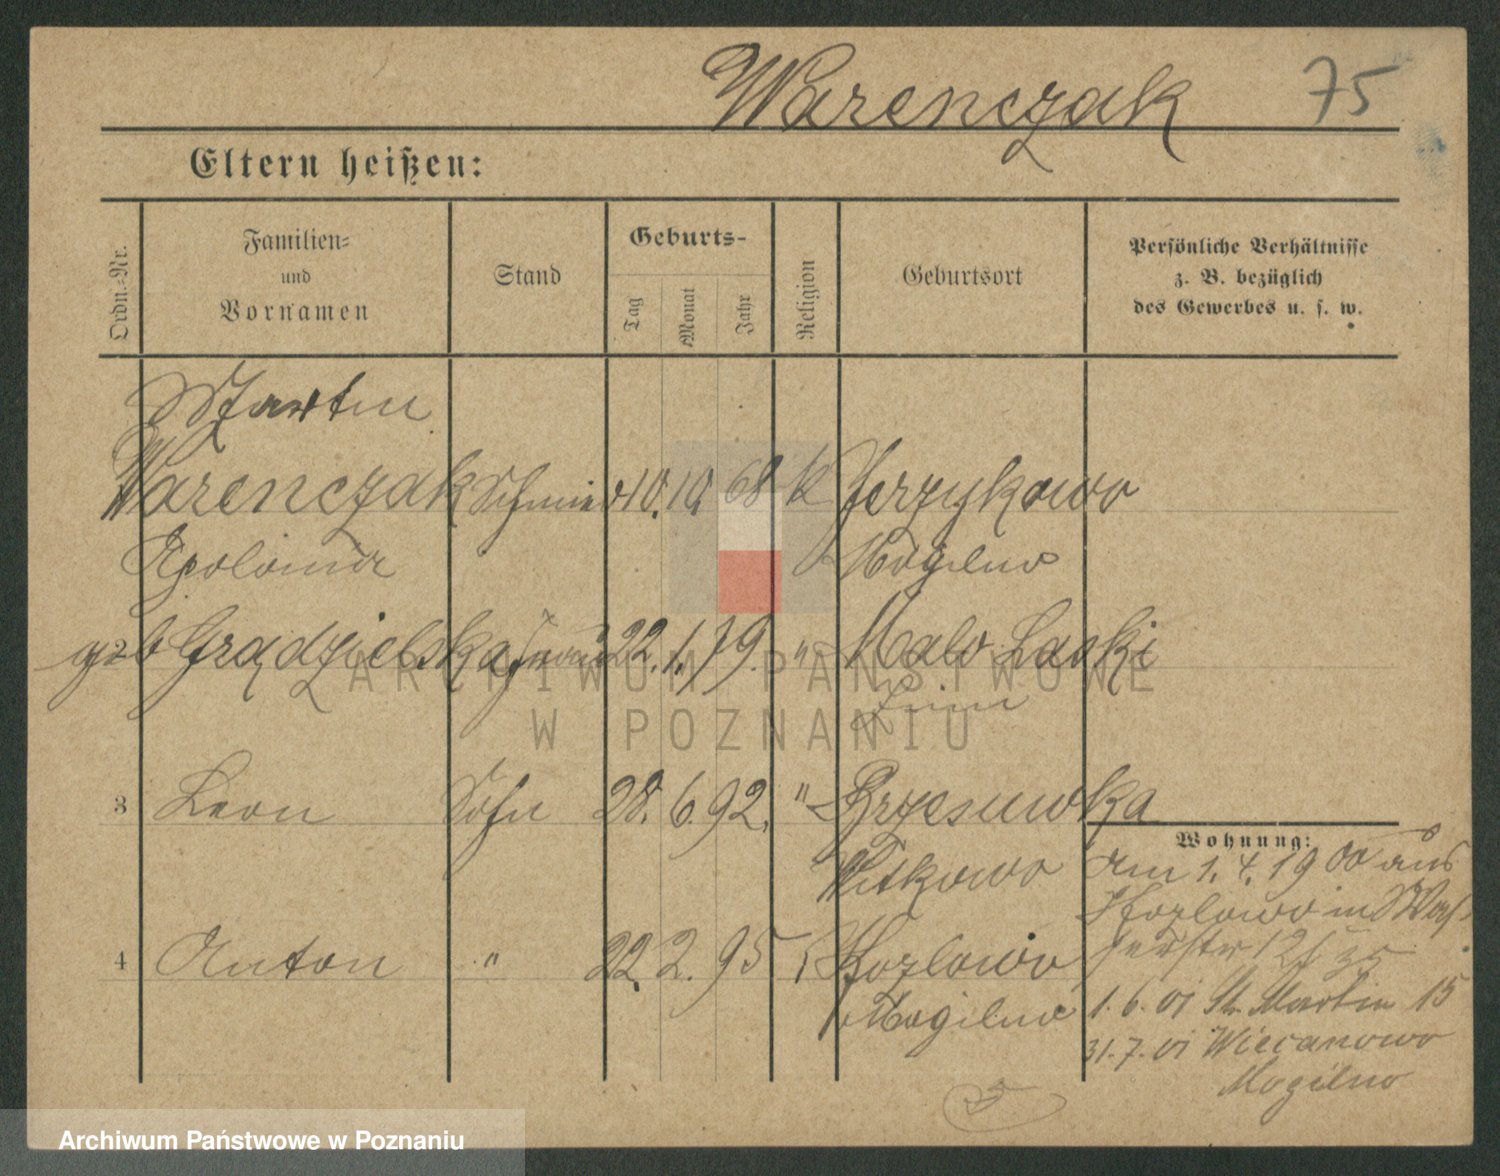 Warenczak 75
Eltern heißen:
Ordn.-Nr.
Familien-
und
Vornamen
Stand
Geburts-
Tag
Monat
Jahr
Religion
Geburtsort
Persönliche Verhältnisse
z. B. bezüglich
des Gewerbes u. s. w.
Martin
Warenczak Schmied 10. 10. 68 k Jerzykowo
Apolonia Mogilno
2 geb Grądzielska Frau 22. 1. 79. " Malo Laski
Znin
3 Leon Sohn 28. 6. 92. "
Witkowo
4 Anton " 22. 2. 95 Kozlowo
Mogilno
Wohnung:
Am 1. 4. 1900 aus
Kozlowo in
1. 6. 01 St. Martin 15
31. 7. 01 Wiecanowo
Mogilno
ARCHIWUM PAŃSTWOWE
W POZNANIU
Archiwum Państwowe w Poznaniu